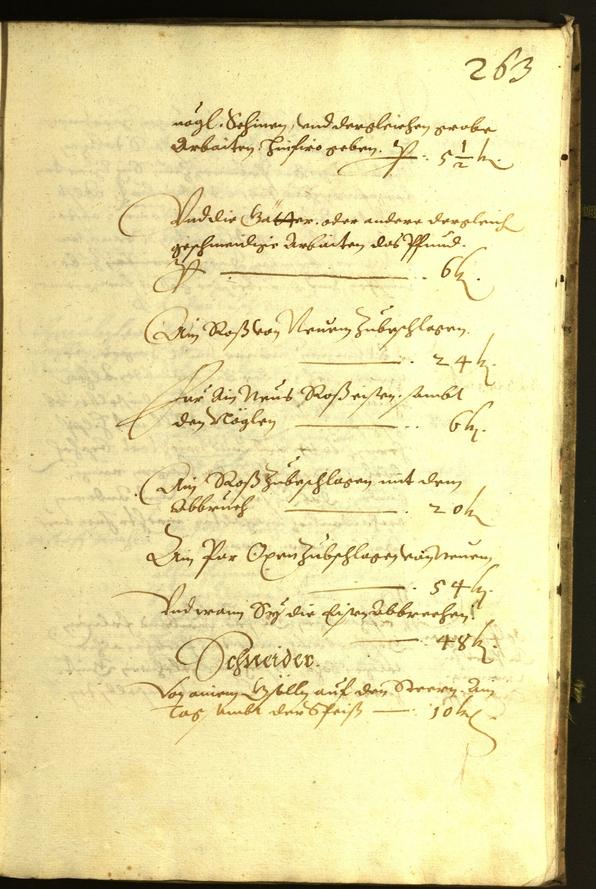 263
nögl, Schinen, vnd dergleichen grobe
Arbaiten hinfiro geben. P. 5 1/2 k.
Vnd die Gätter. oder andere dergleich
geschmeidige Arbaiten das Pfund.
6 k.
Ain Roß von Neuem zubeschlagen.
24 k.
Für ain Neus Roßeisen. sambt
den Nöglen 6 k.
Ain Roß zubeschlagen mit dem
Abbruch 20 k.
Ain Par Oxen zubschlagen von Neuem
54 k.
Vnd wann Sy die Eisen abbrechen.
48 k.
Schneider.
Von ainem Gselln auf den Steern. Am
Tag sambt der Speiß 10 k.